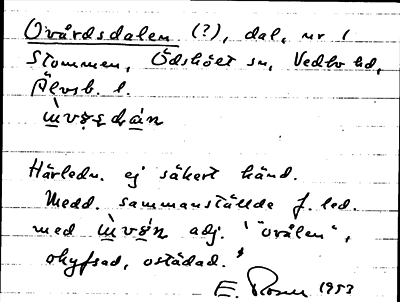 Ovårdsdalen (?), dal, nr 1
Stommen, Ödskölt sn, Vedbo hd,
Älvsb. l.
Härledn. ej säkert känd.
Medd. sammanställde f. led.
med adj. "ovålen",
okyfsad, ostädad."
E. Rosen 1953